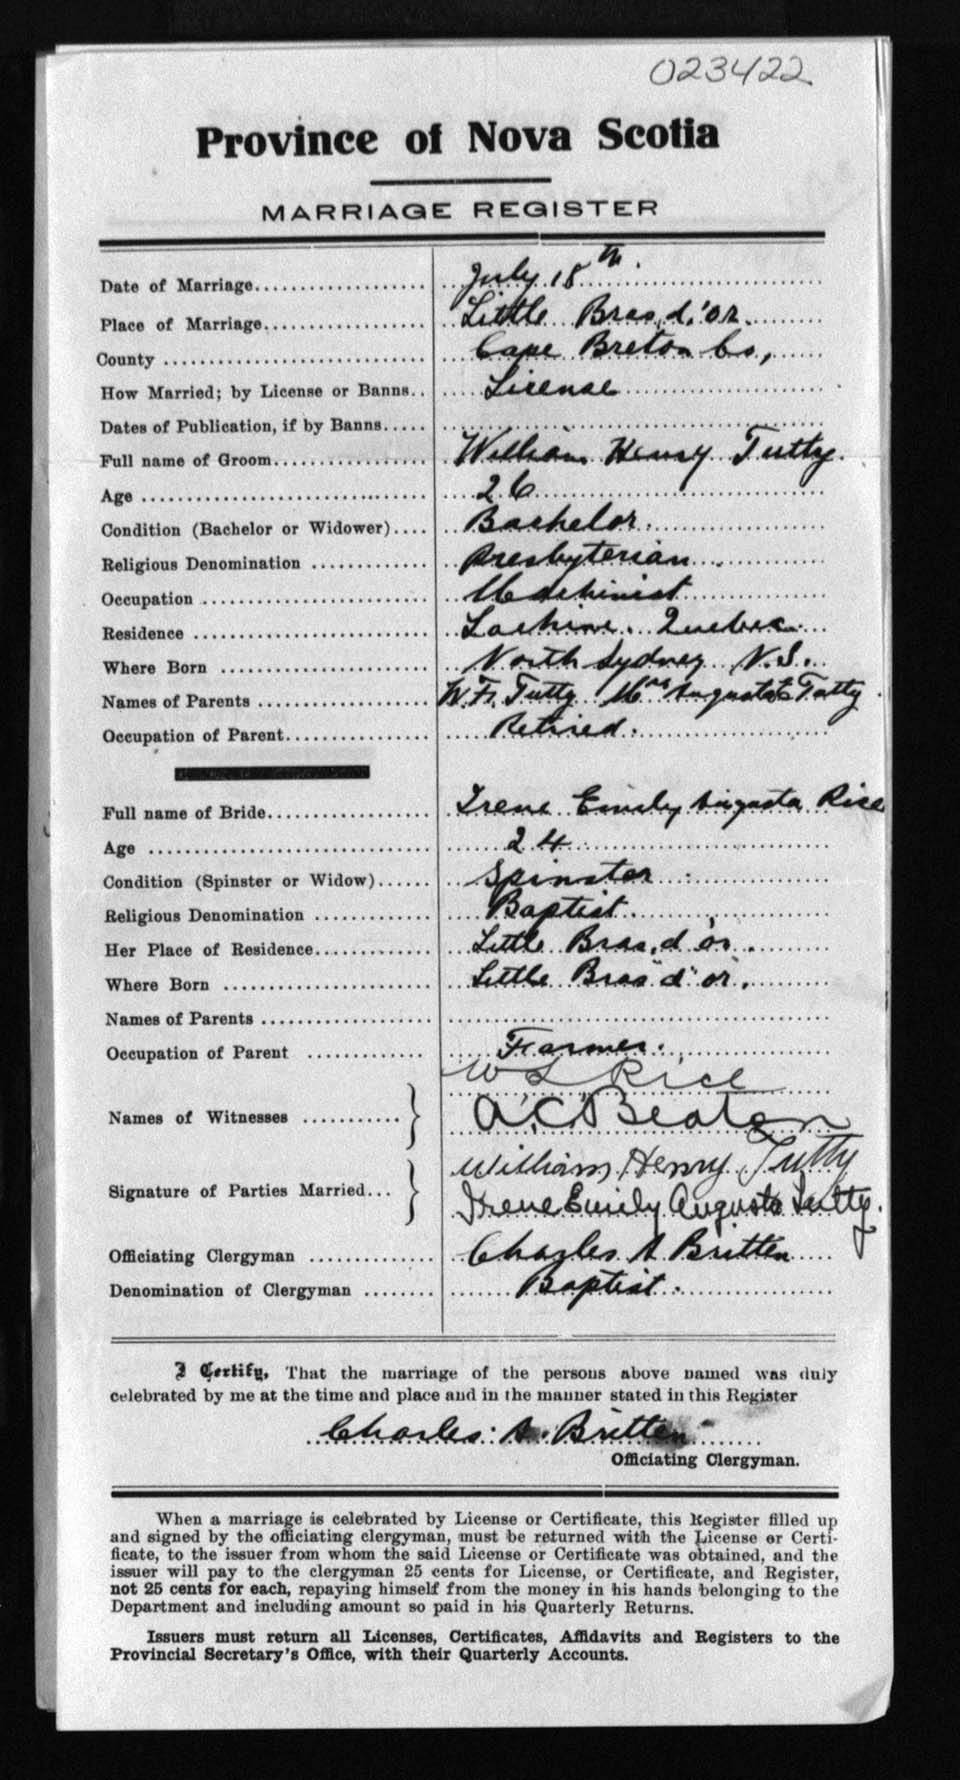 023422
Province of Nova Scotia
MARRIAGE REGISTER
Date of Marriage.................... July 18th.
Place of Marriage................... Little Bras d'or.
County ........................... Cape Breton Co,
How Married; by License or Banns.. License
Dates of Publication, if by Banns.....
Full name of Groom.................. William Henry Tutty.
Age ............................... 26
Condition (Bachelor or Widower).... Bachelor.
Religious Denomination ............. Presbyterian
Occupation ......................... Machinist
Residence .......................... Lachine. Quebec.
Where Born ....................... North Sydney N.S.
Names of Parents ................... W. F. Tutty Mrs Augusta Tutty.
Occupation of Parent................ Retired.
Full name of Bride................... Irene Emily Augusta Rice
Age ............................... 24
Condition (Spinster or Widow)...... Spinster.
Religious Denomination ............. Baptist.
Her Place of Residence.............. Little Bras d'or.
Where Born ....................... Little Bras d'or.
Names of Parents ...................
Occupation of Parent ............. Farmer.
W L Rice
Names of Witnesses ........... A. C. Beaton
William Henry Tutty
Signature of Parties Married... Irene Emily Augusta Tutty.
Officiating Clergyman .............. Charles A Britten
Denomination of Clergyman ........ Baptist.
I Certify, That the marriage of the persons above named was duly
celebrated by me at the time and place and in the manner stated in this Register
Charles A. Britten
Officiating Clergyman.
When a marriage is celebrated by License or Certificate, this Register filled up
and signed by the officiating clergyman, must be returned with the License or Certi-
ficate, to the issuer from whom the said License or Certificate was obtained, and the
issuer will pay to the clergyman 25 cents for License, or Certificate, and Register,
not 25 cents for each, repaying himself from the money in his hands belonging to the
Department and including amount so paid in his Quarterly Returns.
Issuers must return all Licenses, Certificates, Affidavits and Registers to the
Provincial Secretary's Office, with their Quarterly Accounts.